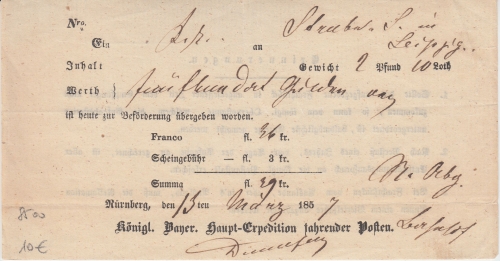 Nro.
Ein an in
Inhalt Gewicht 2 Pfund 10 Loth Leipzig.
Werth fünfhundert Gulden
ist heute zur Beförderung übergeben worden.
Franco fl. 36 kr.
Scheingebühr — fl. 3 kr.
Summa fl. 39 kr.
Nürnberg, den 13 ten März 1857
Königl. Bayer. Haupt-Expedition fahrender Posten.
10 €